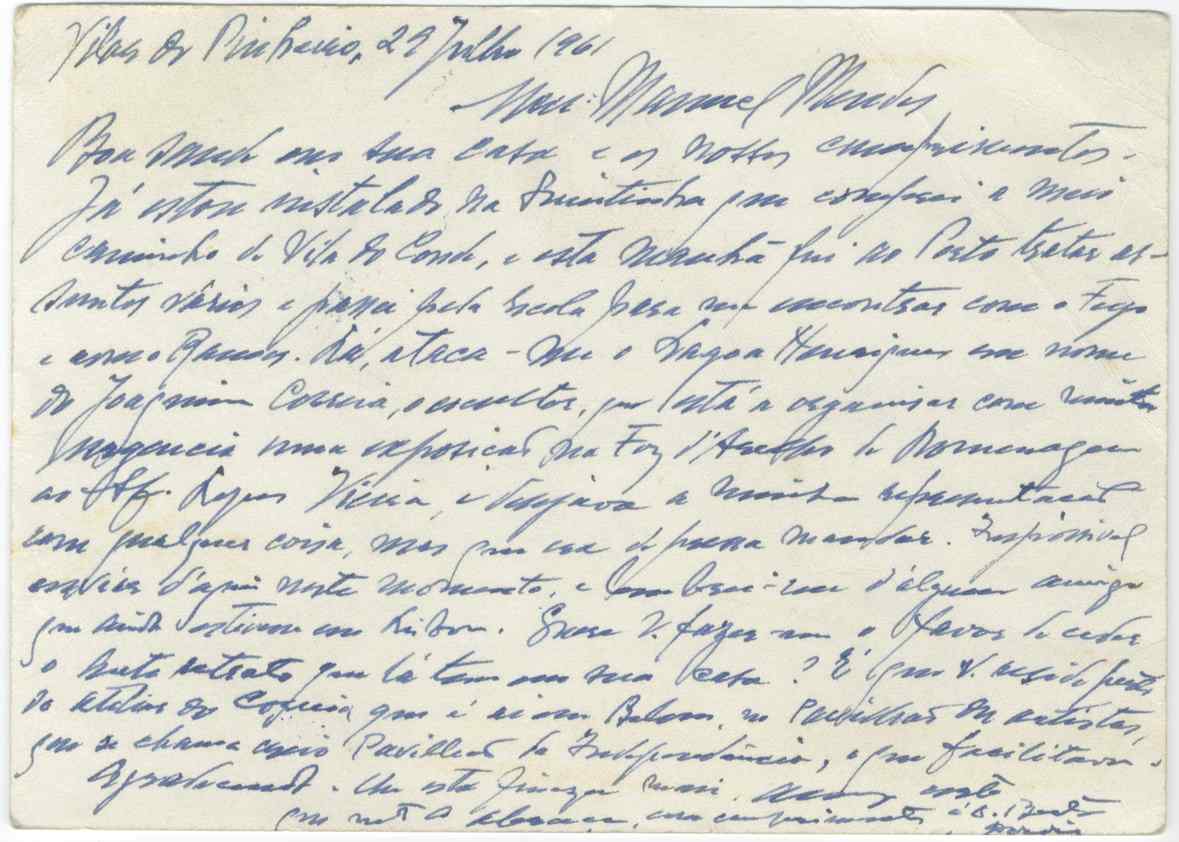 Vilar do Pinheiro, 29 Julho 1961
Meu: Manuel Mendes
Boa saude em sua casa e os nossos cumprimentos.
Já estou instalado na Quintinha que comprei a meio
caminho de Vila do Conde, e esta manhã fui ao Porto tratar as-
suntos vários e passei pela Escola para me encontrar com o
e com o Ramos. Lá, ataca-me o Lagoa Henriques em nome
do Joaquim Correia, o escultor, que está a organisar com muita
urgencia uma exposição na Foz d'Arelho de Homenagem
ao Aff. Lopes Vieira, e desejava a minha representação
com qualquer coisa, mas que era de pressa mandar. Impossivel
enviar d'aqui neste momento, e lembrei-me d'algum amigo
que ainda estivesse em Lisboa. Quere V. fazer-me o favor de ceder
o auto retrato que lá tem em sua casa? É que V. reside perto
do atelier do Correia que é ai em Belem, no Pavilhão dos artistas,
que se chama creio Pavilhão da Independência, o que facilitava.
Agradecendo-lhe esta fineza mais,
que nota abraça, com cumprimentos á